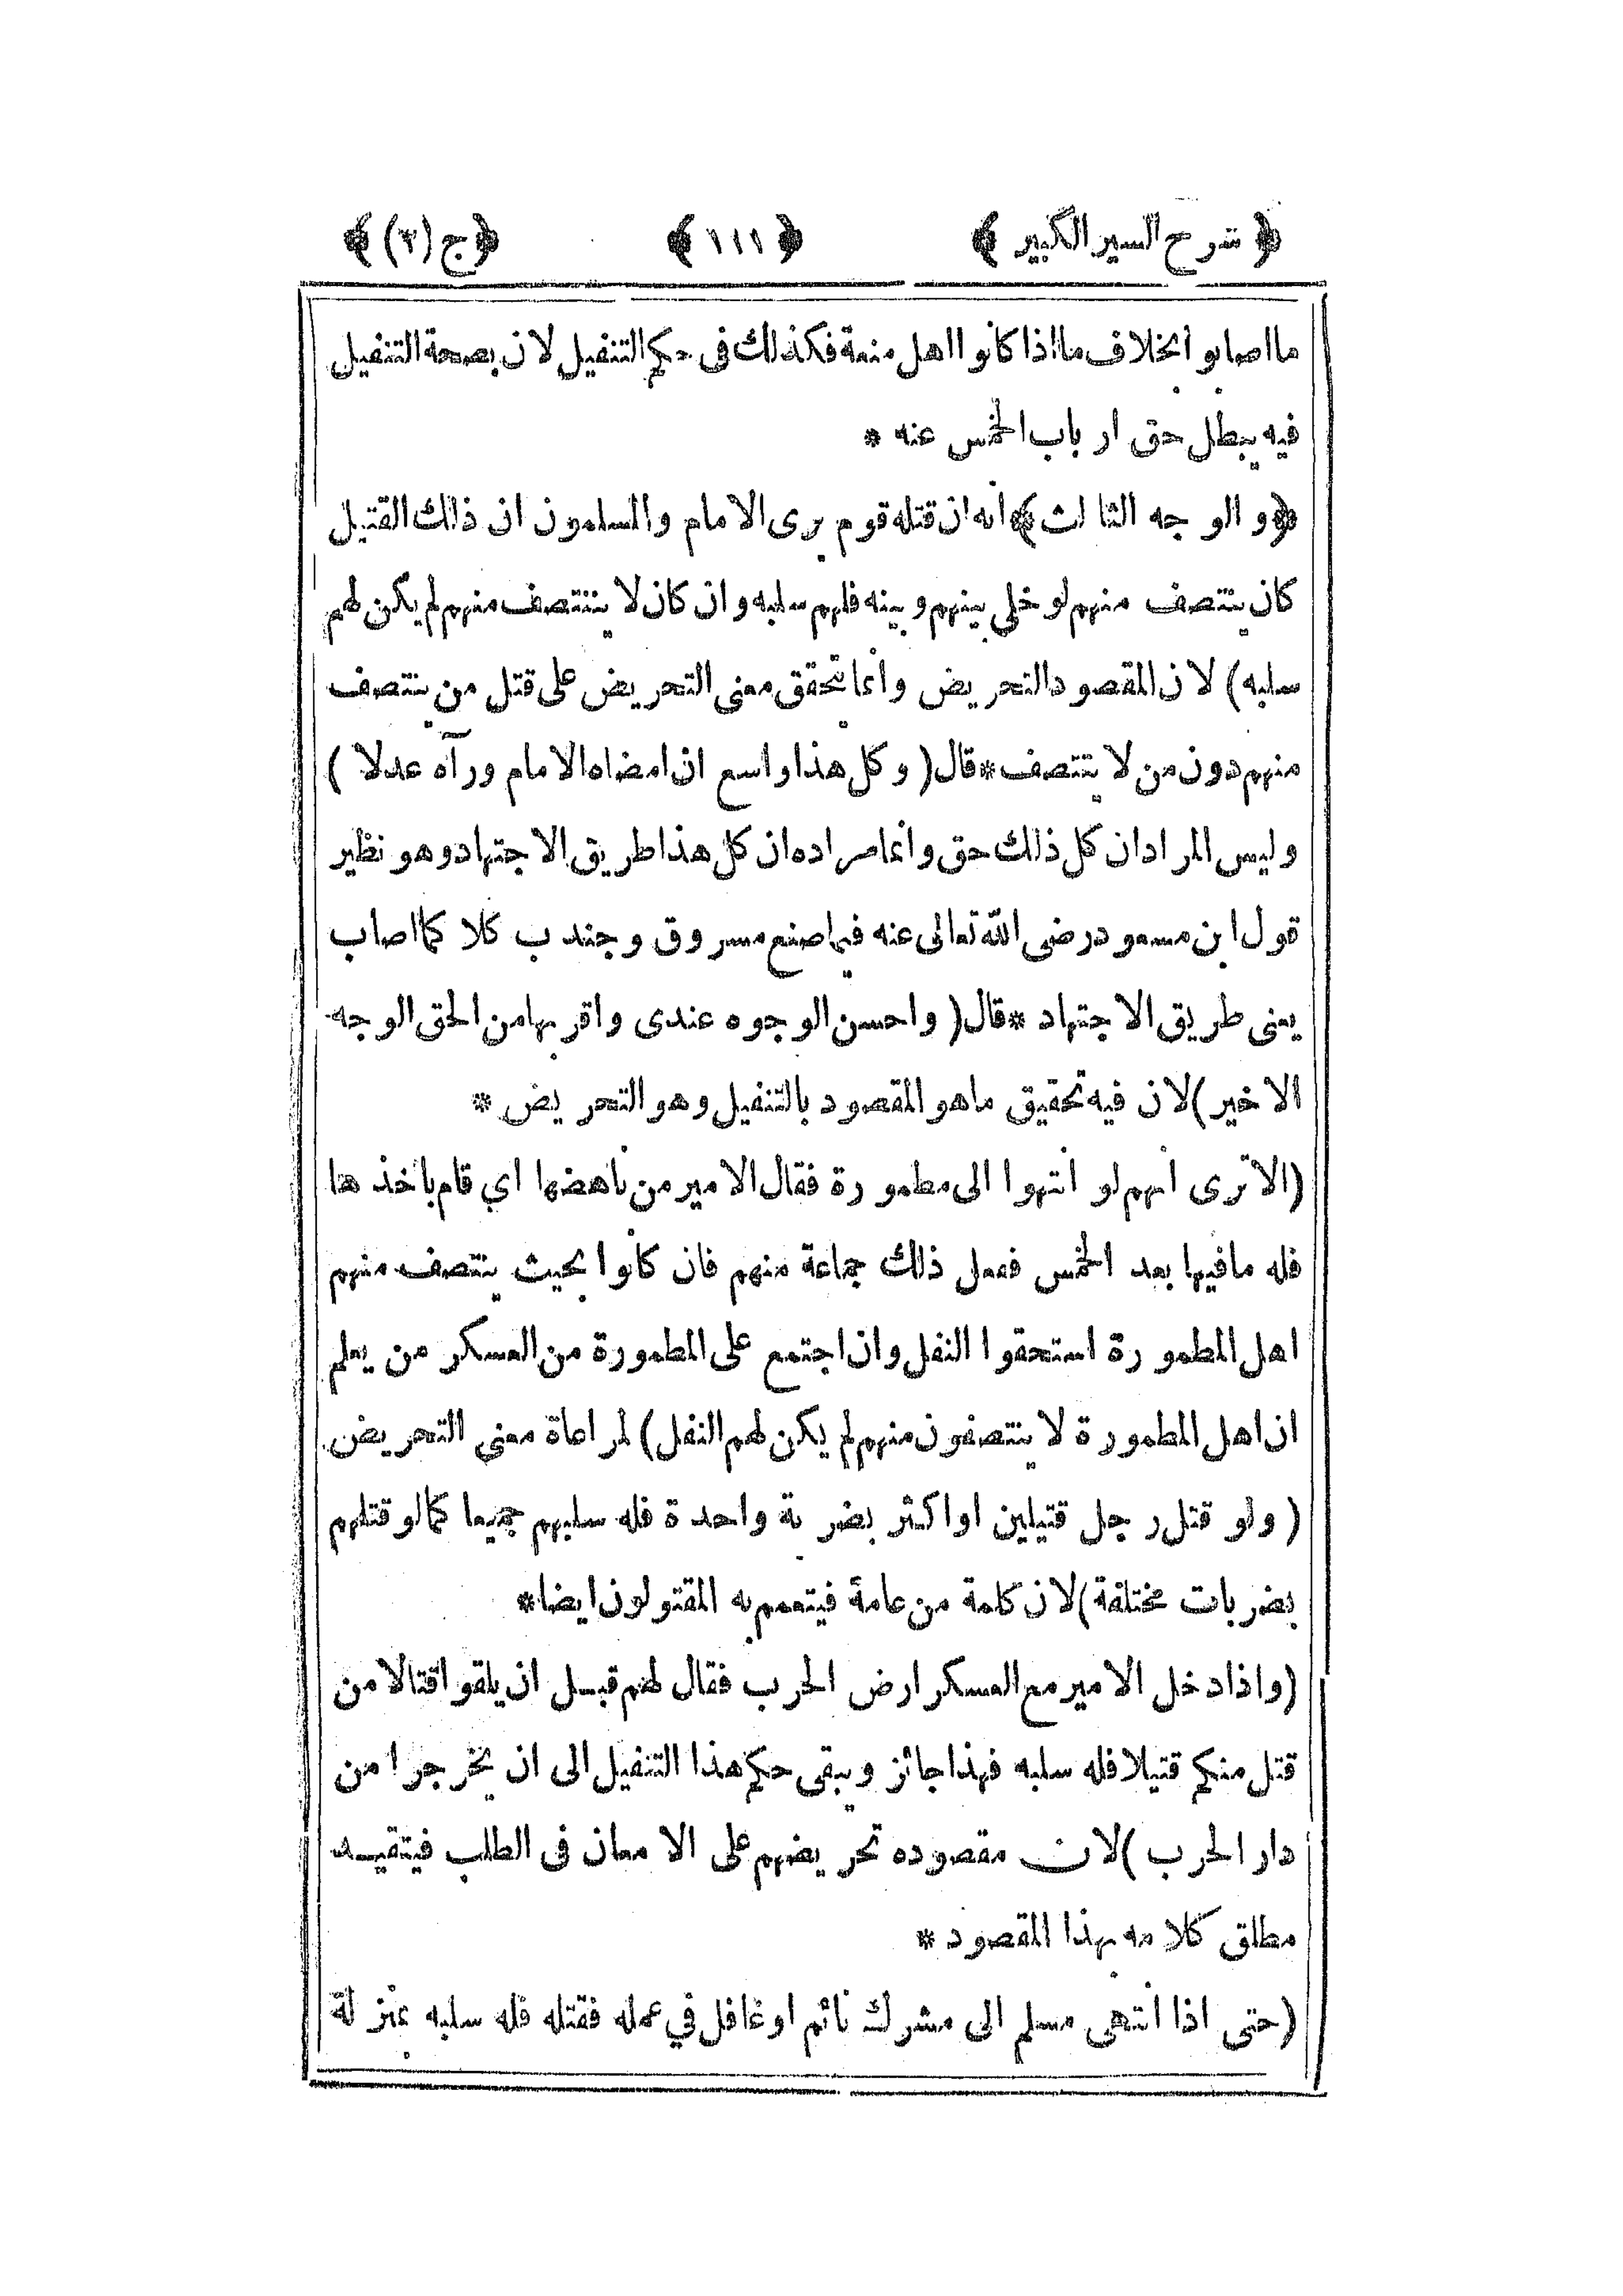 ﴿ شرح السير الكبير ﴾ ﴿ ١١١ ﴾ ﴿ ج (٢) ﴾
ما اصابوا بخلاف ما اذا كانوا اهل منعة فكذلك فى حكم التنفيل لان بصحة التنفيل
فيه يبطل حق ارباب الخمس عنه *
﴿ والوجه الثالث ﴾ انه ان قتله قوم يرى الامام والمسلمون ان ذلك القتيل
كان ينتصف منهم لو خلى بينهم وبينه فلهم سلبه وان كان لا ينتصف منهم لم يكن لهم
سلبه ) لان المقصود التحريض وانما تحقق معنى التحريض على قتل من ينتصف
منهم دون من لا ينتصف * قال ( وكل هذا واسع ان امضاه الامام ورآه عدلا )
وليس المراد ان كل ذلك حق وانما مراده ان كل هذا طريق الاجتهاد وهو نظير
قول ابن مسعود رضى الله تعالى عنه فيما صنع مسروق وجندب كلا كما اصاب
يعنى طريق الاجتهاد * قال ( واحسن الوجوه عندى واقربها من الحق الوجه
الاخير ) لان فيه تحقيق ما هو المقصود بالتنفيل وهو التحريض *
( الا ترى انهم لو انتهوا الى مطمورة فقال الامير من ناهضها اي قام باخذها
فله ما فيها بعد الخمس ففعل ذلك جماعة منهم فان كانوا بحيث ينتصف منهم
اهل المطمورة استحقوا النفل وان اجتمع على المطمورة من العسكر من يعلم
ان اهل المطمورة لا ينتصفون منهم لم يكن لهم النفل ) لمراعاة معنى التحريض
( ولو قتل رجل قتيلين او اكثر بضربة واحدة فله سلبهم جميعا كما لو قتلهم
بضربات مختلفة ) لان كلمة من عامة فيتعمم به المقتولون ايضا *
( واذا دخل الامير مع العسكر ارض الحرب فقال لهم قبل ان يلقوا قتالا من
قتل منكم قتيلا فله سلبه فهذا جائز ويبقى حكم هذا التنفيل الى ان يخرجوا من
دار الحرب ) لان مقصوده تحريضهم على الامعان فى الطلب فيتقيد
مطلق كلامه بهذا المقصود *
( حتى اذا انتهى مسلم الى مشرك نائم او غافل في عمله فقتله فله سلبه بمنزلة